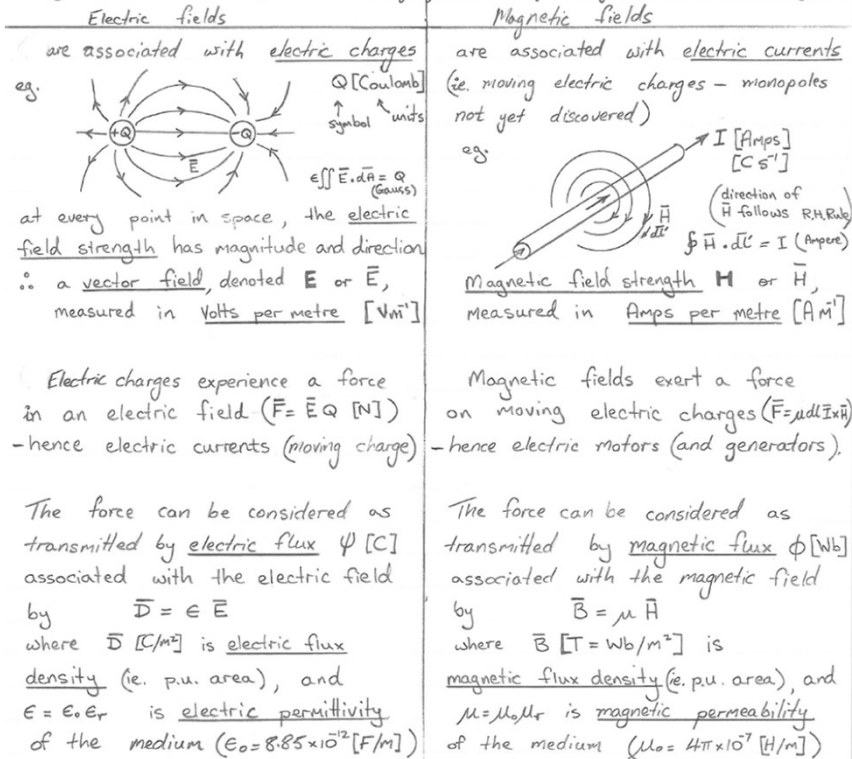 Electric fields
are associated with electric charges
eg.
+Q
-Q
E̅
Q [Coulomb]
symbol
units
ϵ∬ E̅.dA̅ = Q
(Gauss)
at every point in space, the electric
field strength has magnitude and direction
∴ a vector field, denoted E or E̅,
measured in Volts per metre [Vm⁻¹]
Electric charges experience a force
in an electric field (F̅= E̅Q [N])
- hence electric currents (moving charge)
The force can be considered as
transmitted by electric flux ψ [C]
associated with the electric field
by D̅ = ϵ E̅
where D̅ [C/m²] is electric flux
density (ie. p.u. area), and
ϵ = ϵ₀ϵᵣ is electric permittivity
of the medium (ϵ₀=8.85×10⁻¹²[F/m])
Magnetic fields
are associated with electric currents
(ie. moving electric charges – monopoles
not yet discovered)
eg.
I [Amps]
[C s⁻¹]
H̅
dl̅
(direction of
H̅ follows R.H.Rule)
∮ H̅.dl̅ = I (Ampere)
Magnetic field strength H or H̅,
measured in Amps per metre [A m⁻¹]
Magnetic fields exert a force
on moving electric charges (F̅=μdl I̅×H̅)
- hence electric motors (and generators).
The force can be considered as
transmitted by magnetic flux ϕ [Wb]
associated with the magnetic field
by B̅ = μ H̅
where B̅ [T = Wb/m²] is
magnetic flux density (ie. p.u. area), and
μ=μ₀μᵣ is magnetic permeability
of the medium (μ₀= 4π×10⁻⁷ [H/m])